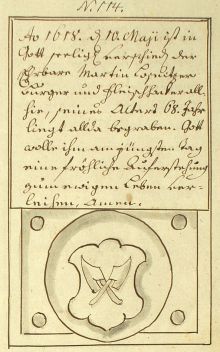 N. 114.
Aō 1618. d 10. Maji ist in
Gott seelig verschied der
Erbare Martin
Burger und Fleischhaker all
hie, seines Alters 68. Jahr
liegt allda begraben. Gott
wolle ihm am jüngsten Tag
eine fröhliche Auferstehung
zum ewigen Leben ver-
leihen, Amen.